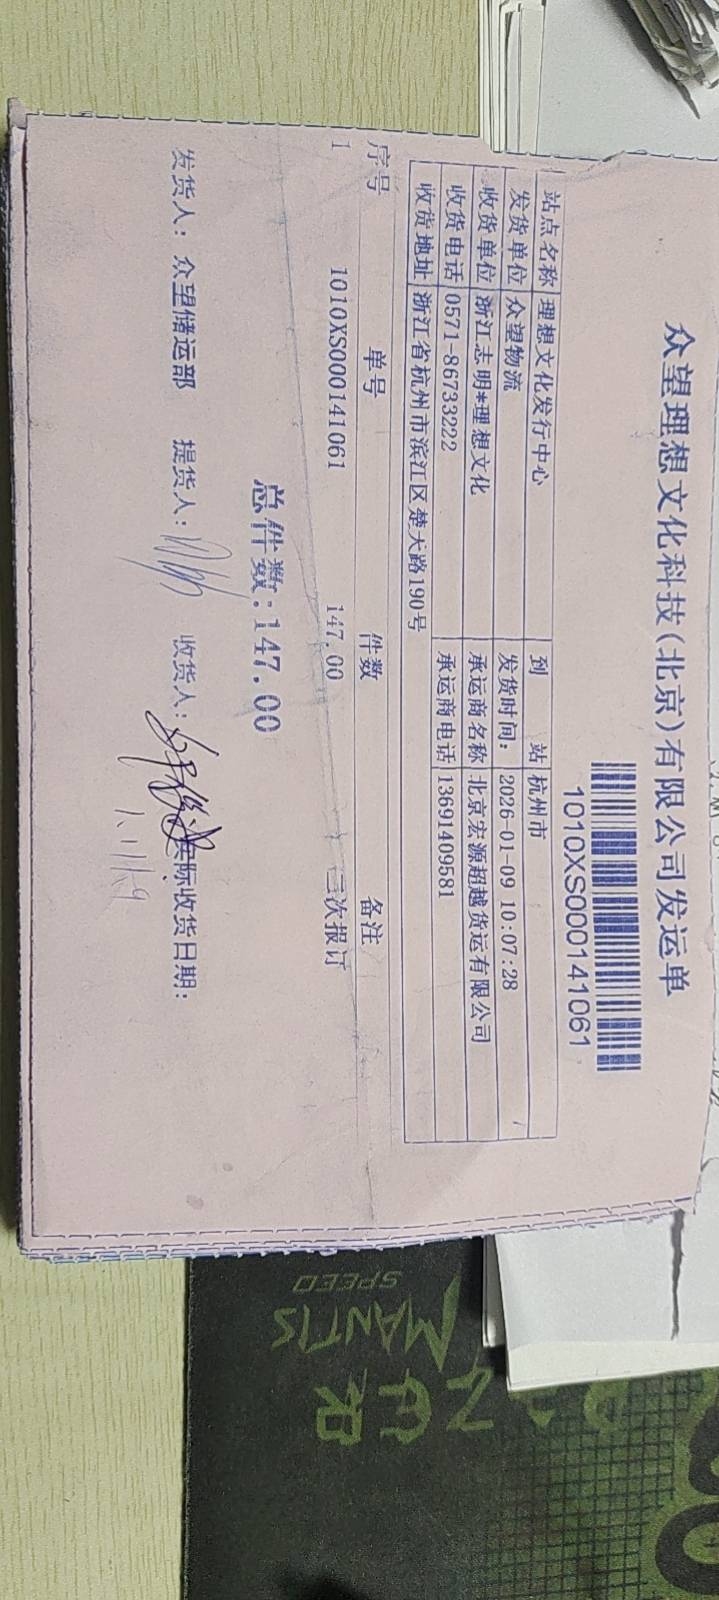 众望理想文化科技(北京)有限公司发运单
1010XS000141061
站点名称 理想文化发行中心 到 站 杭州市
发货单位 众望物流 发货时间: 2026-01-09 10:07:28
收货单位 浙江志明*理想文化 承运商名称 北京宏源超越货运有限公司
收货电话 0571-86733222 承运商电话 13691409581
收货地址 浙江省杭州市滨江区楚天路190号
序号 单号 件数 备注
1 1010XS000141061 147.00 三次报订
总件数:147.00
发货人: 众望储运部 提货人: 收货人: 实际收货日期:
MANTIS
SPEED